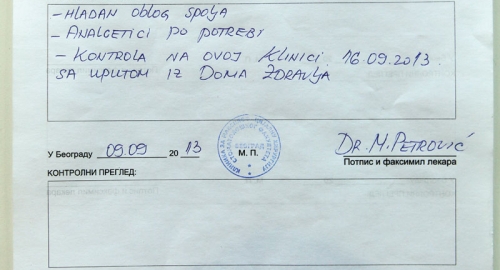 - HLADAN OBLOG SPOLJA
- ANALGETICI PO POTREBI
- KONTROLA NA OVOJ KLINICI 16.09.2013.
SA UPUTOM IZ DOMA ZDRAVLJA
У Београду 09.09 2013
М. П.
DR. M. PETROVIĆ
Потпис и факсимил лекара
КОНТРОЛНИ ПРЕГЛЕД: